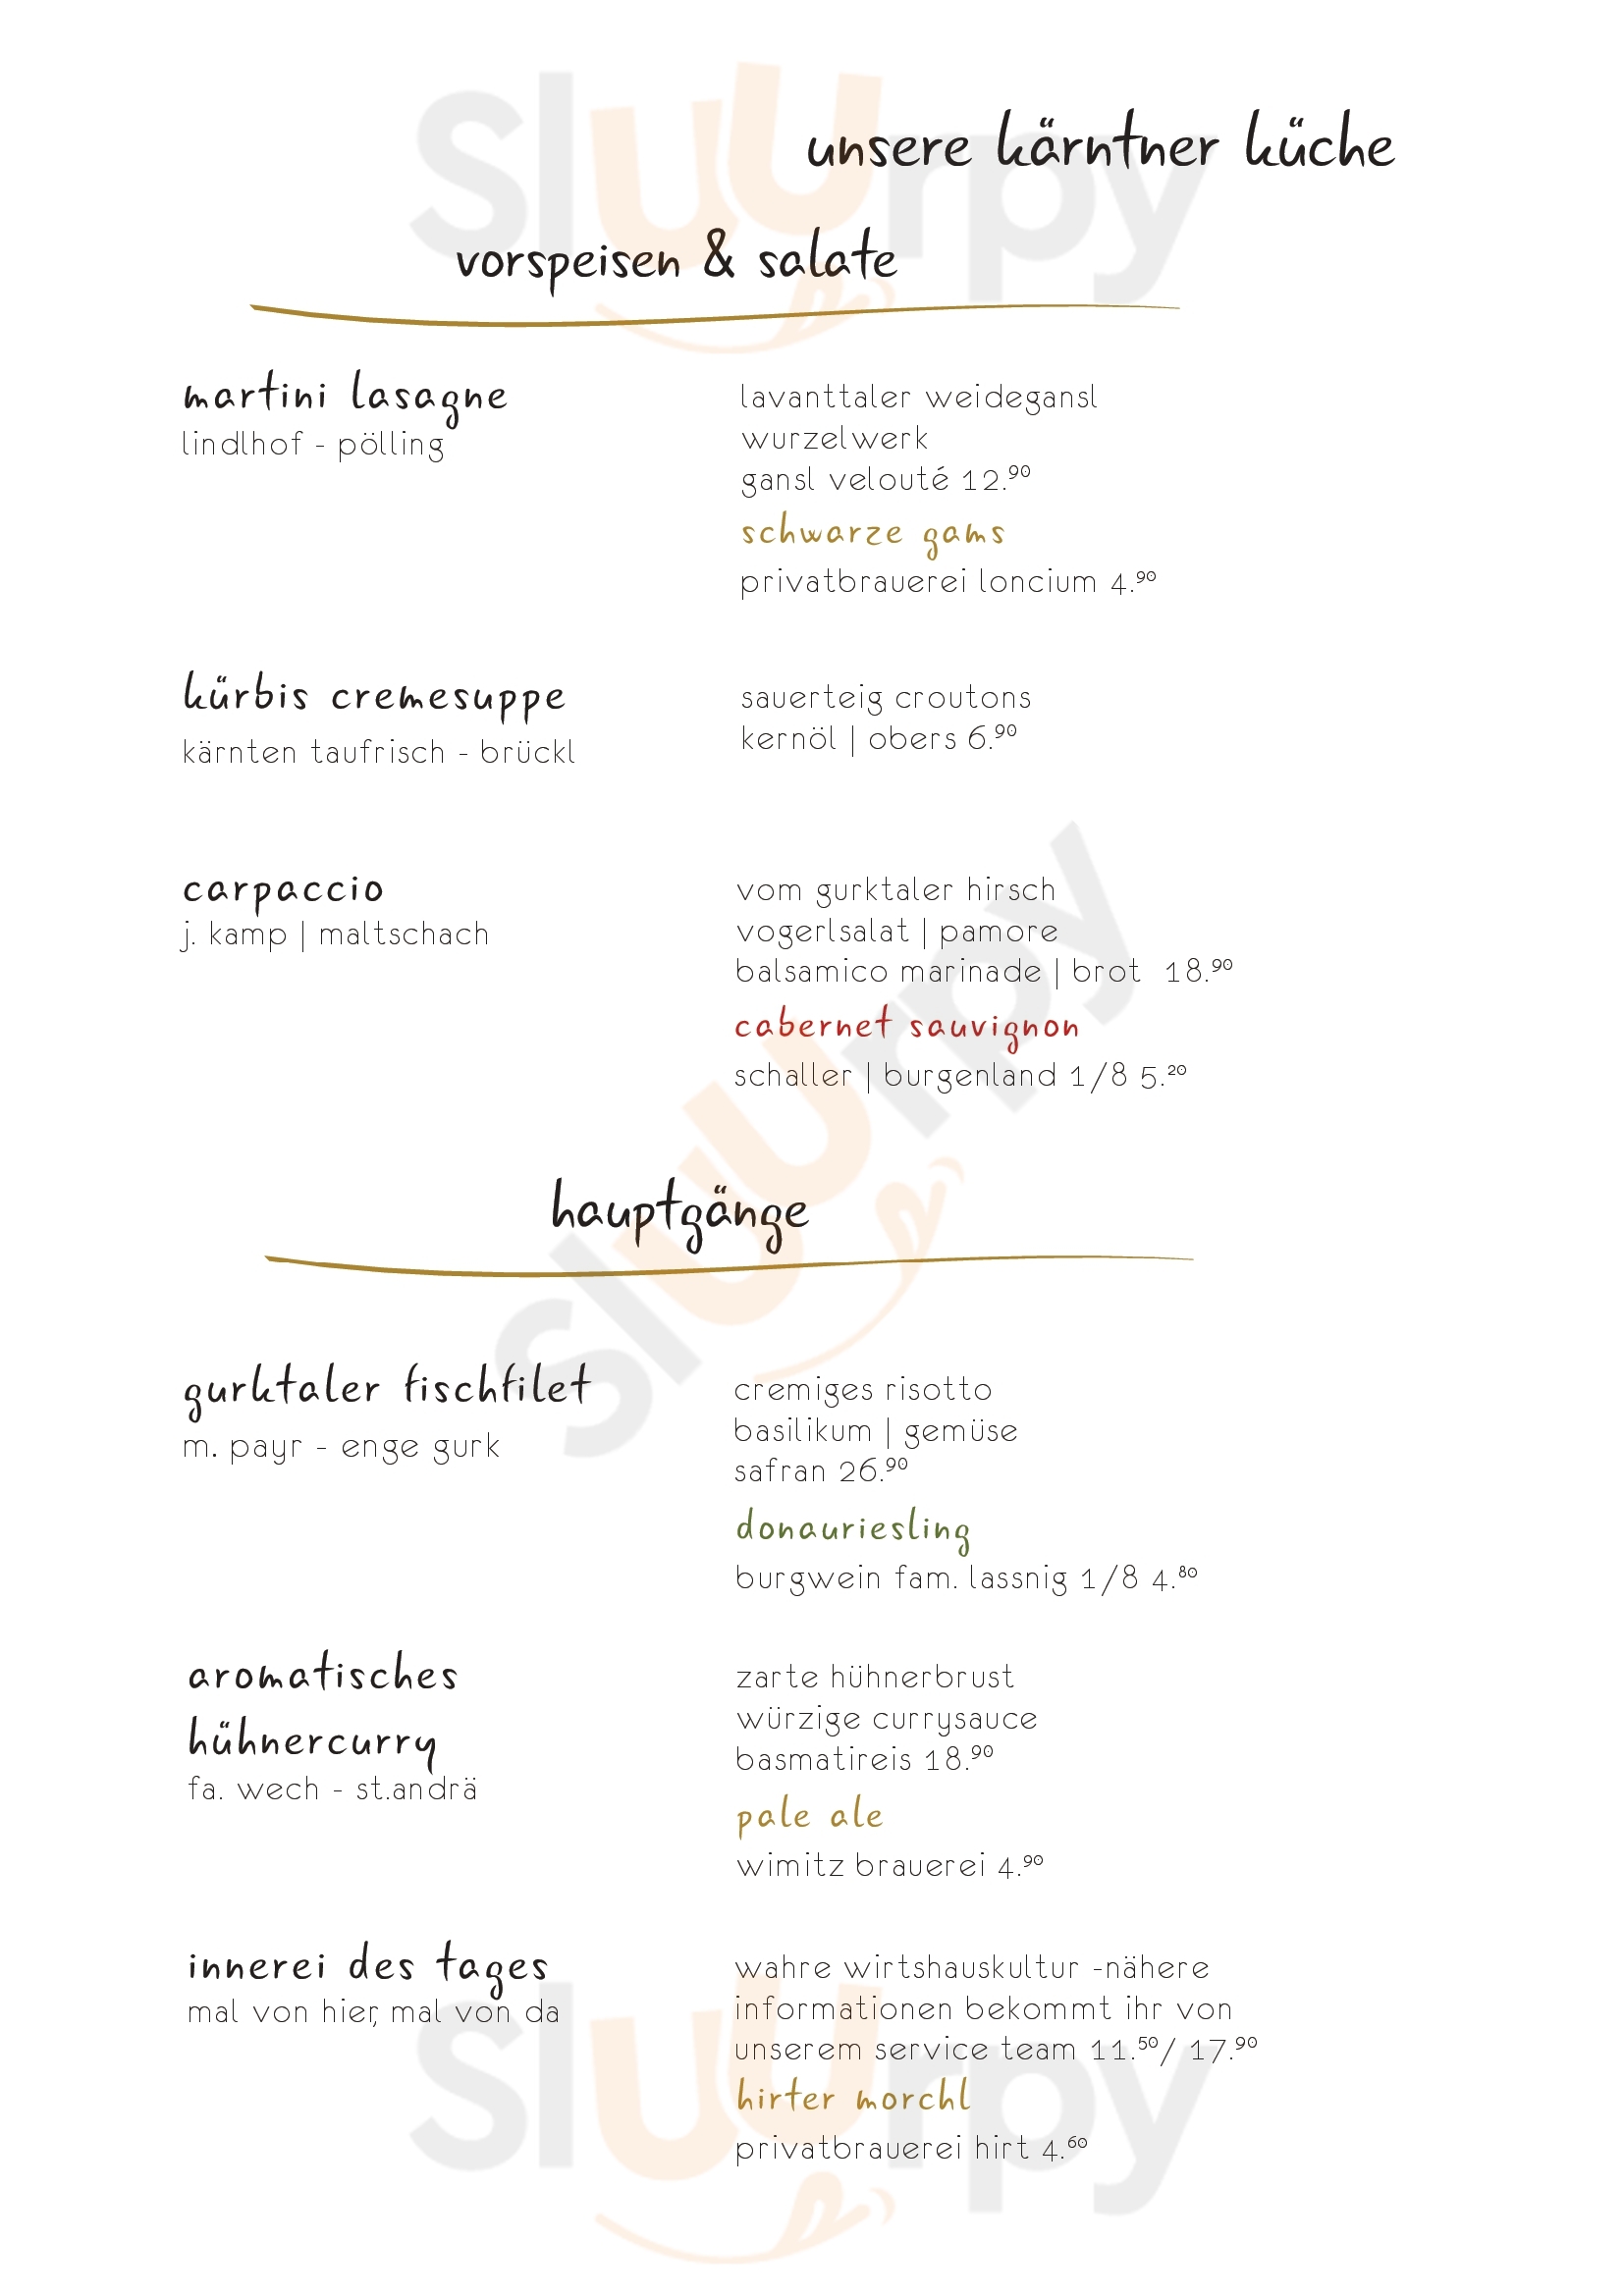 unsere kärntner küche
vorspeisen & salate
martini lasagne
lindlhof - pölling
lavanttaler weidegansl
wurzelwerk
gansl velouté 12.90
schwarze gams
privatbrauerei loncium 4.90
kürbis cremesuppe
kärnten taufrisch - brückl
sauerteig croutons
kernöl | obers 6.90
carpaccio
j. kamp | maltschach
vom gurktaler hirsch
vogerlsalat | pamore
balsamico marinade | brot 18.90
cabernet sauvignon
schaller | burgenland 1/8 5.20
hauptgänge
gurktaler fischfilet
m. payr - enge gurk
cremiges risotto
basilikum | gemüse
safran 26.90
donauriesling
burgwein fam. lassnig 1/8 4.80
aromatisches
hühnercurry
fa. wech - st.andrä
zarte hühnerbrust
würzige currysauce
basmatireis 18.90
pale ale
wimitz brauerei 4.90
innerei des tages
mal von hier, mal von da
wahre wirtshauskultur -nähere
informationen bekommt ihr von
unserem service team 11.50/ 17.90
hirter morchl
privatbrauerei hirt 4.60
sluurpy
sluurpy
sluurpy